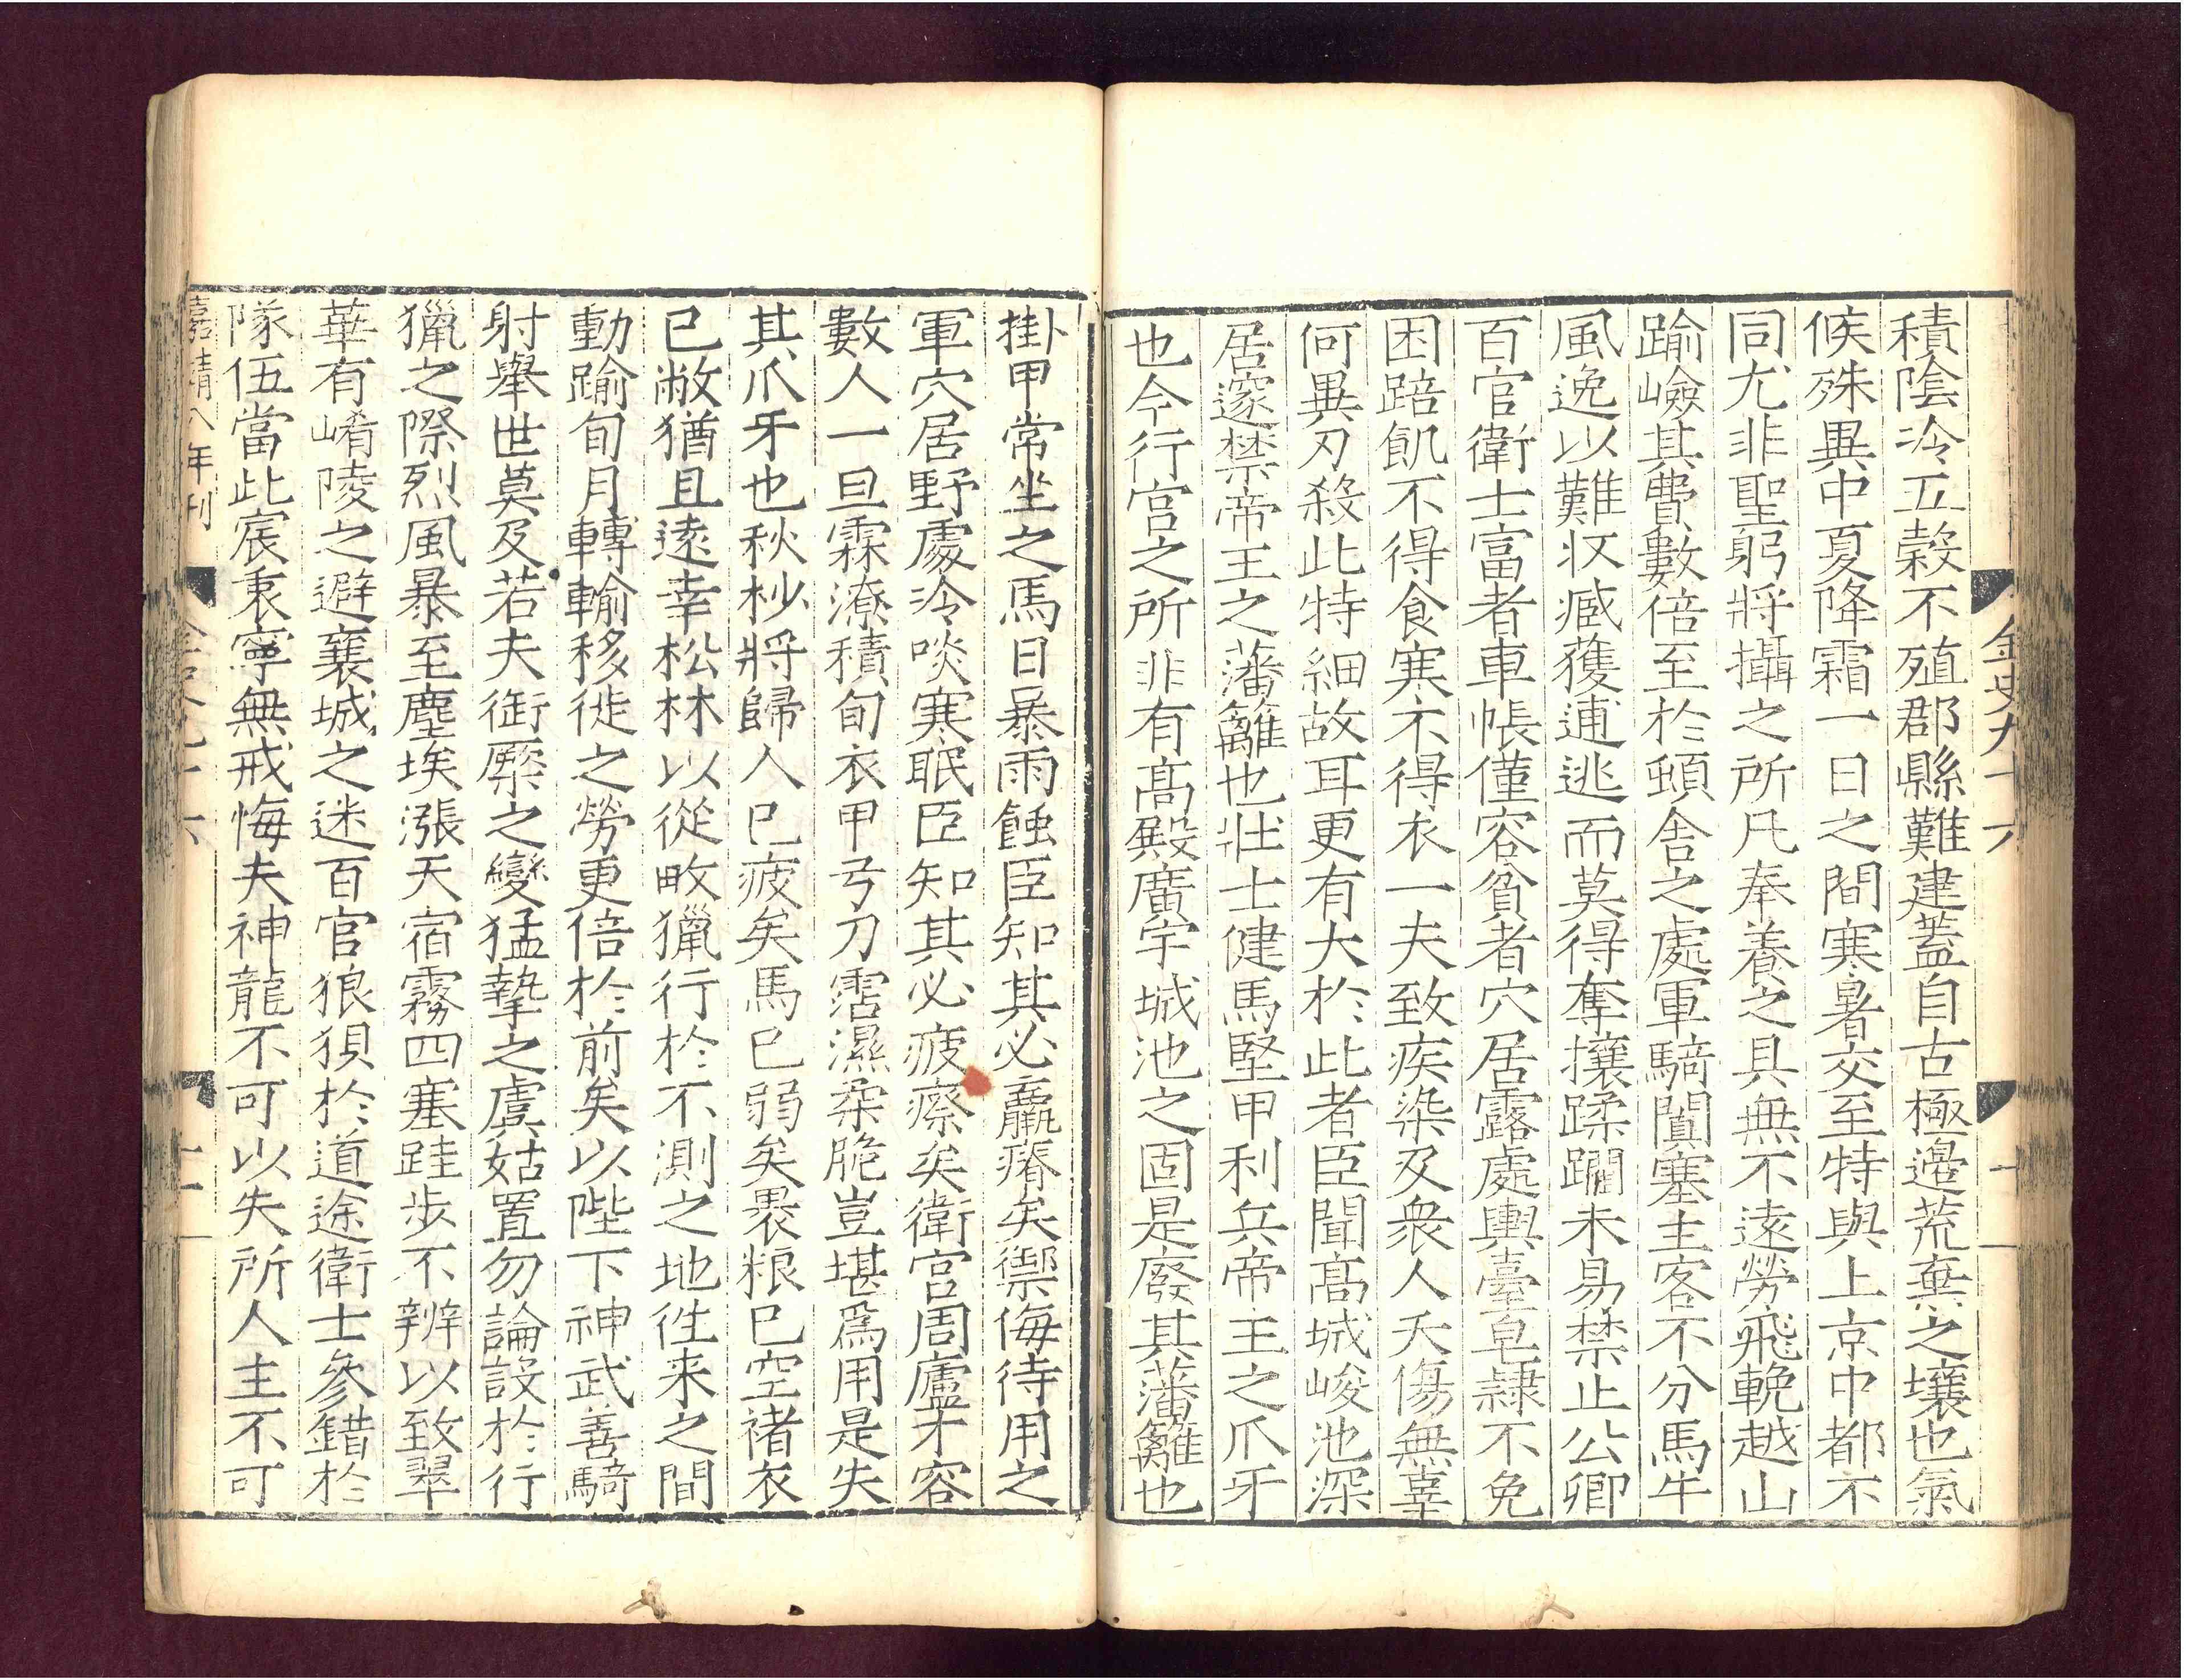 積陰冷五穀不殖郡縣難建蓋自古極邊荒棄之壤也氣
候殊異中夏降霜一日之間寒暑交至特與上京中都不
同尤非聖躬將攝之所凡奉養之具無不遠勞飛輓越山
踰嶮其費數倍至於頓舍之處軍騎闐塞主客不分馬牛
風逸以難收臧獲逋逃而莫得奪攘蹂躪未易禁止公卿
百官衛士富者車帳僅容貧者穴居露處輿臺皂隷不免
困踣飢不得食寒不得衣一夫致疾染及衆人夭傷無辜
何異刃殺此特細故耳更有大於此者臣聞髙城峻池深
居邃禁帝王之藩籬也壯士健馬堅甲利兵帝王之爪牙
也今行宫之所非有髙殿廣宇城池之固是廢其藩籬也
金史九十六
十一
掛甲常坐之馬日暴雨蝕臣知其必羸瘠矣禦侮待用之
軍穴居野處冷啖寒眠臣知其必疲瘵矣衛宫周廬才容
數人一旦霖潦積旬衣甲弓刀霑濕柔脆豈堪爲用是失
其爪牙也秋杪將歸人已疲矣馬已弱矣褁粮已空褚衣
已敝猶且遠幸松林以從畋獵行於不測之地徃来之間
動踰旬月轉輸移徙之勞更倍於前矣以陛下神武善騎
射舉世莫及若夫銜橜之變猛摯之虞姑置勿論設於行
獵之際烈風暴至塵埃漲天宿霧四塞跬步不辨以致翠
華有崤陵之避襄城之迷百官狼狽於道途衛士參錯於
隊伍當此宸衷寧無戒悔夫神龍不可以失所人主不可
嘉靖八年刊